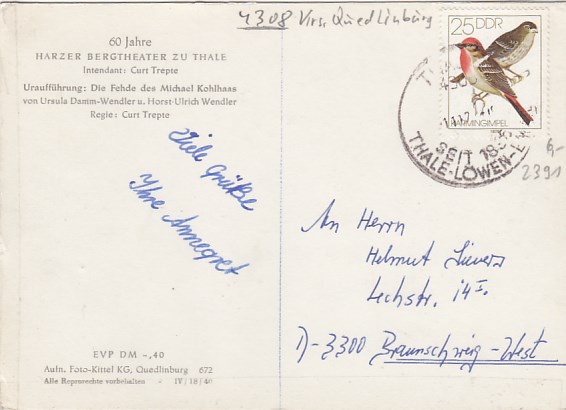 4308 Krs. Quedlinburg
60 Jahre
HARZER BERGTHEATER ZU THALE
Intendant: Curt Trepte
Uraufführung: Die Fehde des Michael Kohlhaas
von Ursula Damm-Wendler u. Horst-Ulrich Wendler
Regie: Curt Trepte
Viele Grüße
Ihre Annegret
EVP DM -,40
Aufn. Foto-Kittel KG, Quedlinburg 672
Alle Reprorechte vorbehalten - IV/18/46
25 DDR
KARMINGIMPEL
SEIT
THALE-LÖWEN-
6-
2391
An Herrn
Helmut
Lechstr. 14 I.
D-3300 Braunschweig-West